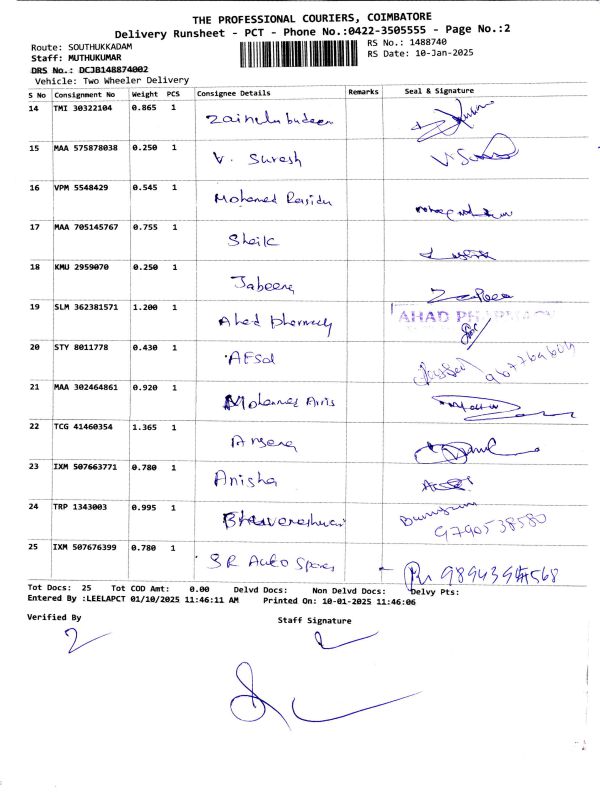 THE PROFESSIONAL COURIERS, COIMBATORE
Delivery Runsheet - PCT - Phone No.:0422-3505555 - Page No.:2
Route: SOUTHUKKADAM
RS No.: 1488740
Staff: MUTHUKUMAR
RS Date: 10-Jan-2025
DRS No.: DCJB148874002
Vehicle: Two Wheeler Delivery
S No Consignment No Weight PCS Consignee Details Remarks Seal & Signature
14 TMI 30322104 0.865 1 Zainulubudeen
15 MAA 575878038 0.250 1 V. Suresh V Su
16 VPM 5548429 0.545 1 Mohamed
17 MAA 705145767 0.755 1 Sheik
18 KMU 2959070 0.250 1 Jabeena
19 SLM 362381571 1.200 1 Ahad pharmacy AHAD PHARMACY
20 STY 8011778 0.430 1 Afsal
21 MAA 302464861 0.920 1 Mohammed Anis
22 TCG 41460354 1.365 1 Ansena
23 IXM 507663771 0.780 1 Anisha
24 TRP 1343003 0.995 1 Bhuvaneshwari 9790538580
25 IXM 507676399 0.780 1 SR Auto Spares
Tot Docs: 25 Tot COD Amt: 0.00 Delvd Docs: Non Delvd Docs: Delvy Pts:
Entered By :LEELAPCT 01/10/2025 11:46:11 AM Printed On: 10-01-2025 11:46:06
Verified By
Staff Signature